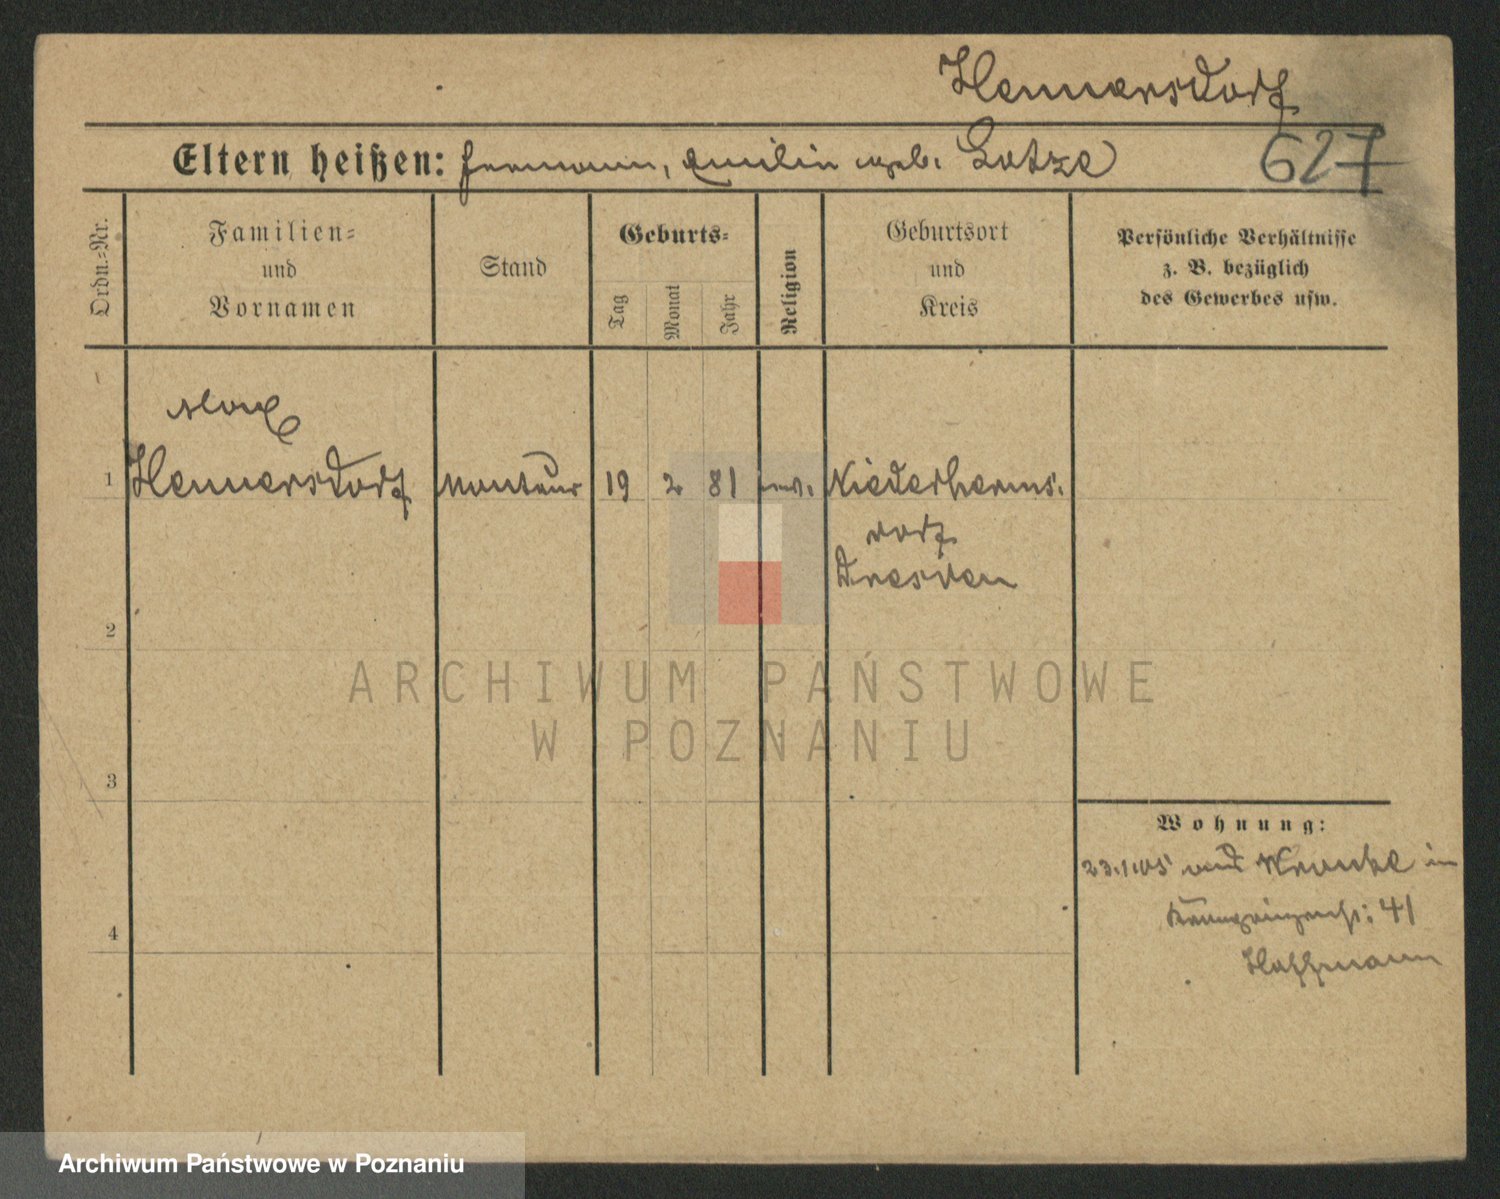 Hennersdorf
627
Eltern heißen: Hermann, Emilie geb. Lotze
Ordn.-Nr.
Familien-
und
Vornamen
Stand
Geburts-
Tag
Monat
Jahr
Religion
Geburtsort
und
Kreis
Persönliche Verhältnisse
z. B. bezüglich
des Gewerbes usw.
Max
1 Hennersdorf Monteur 19 2 81 ev. Niederherms-
dorf
Dresden
2
ARCHIWUM PAŃSTWOWE
W POZNANIU
3
4
Wohnung:
23.1.05 aus in
41
Hoffmann
Archiwum Państwowe w Poznaniu